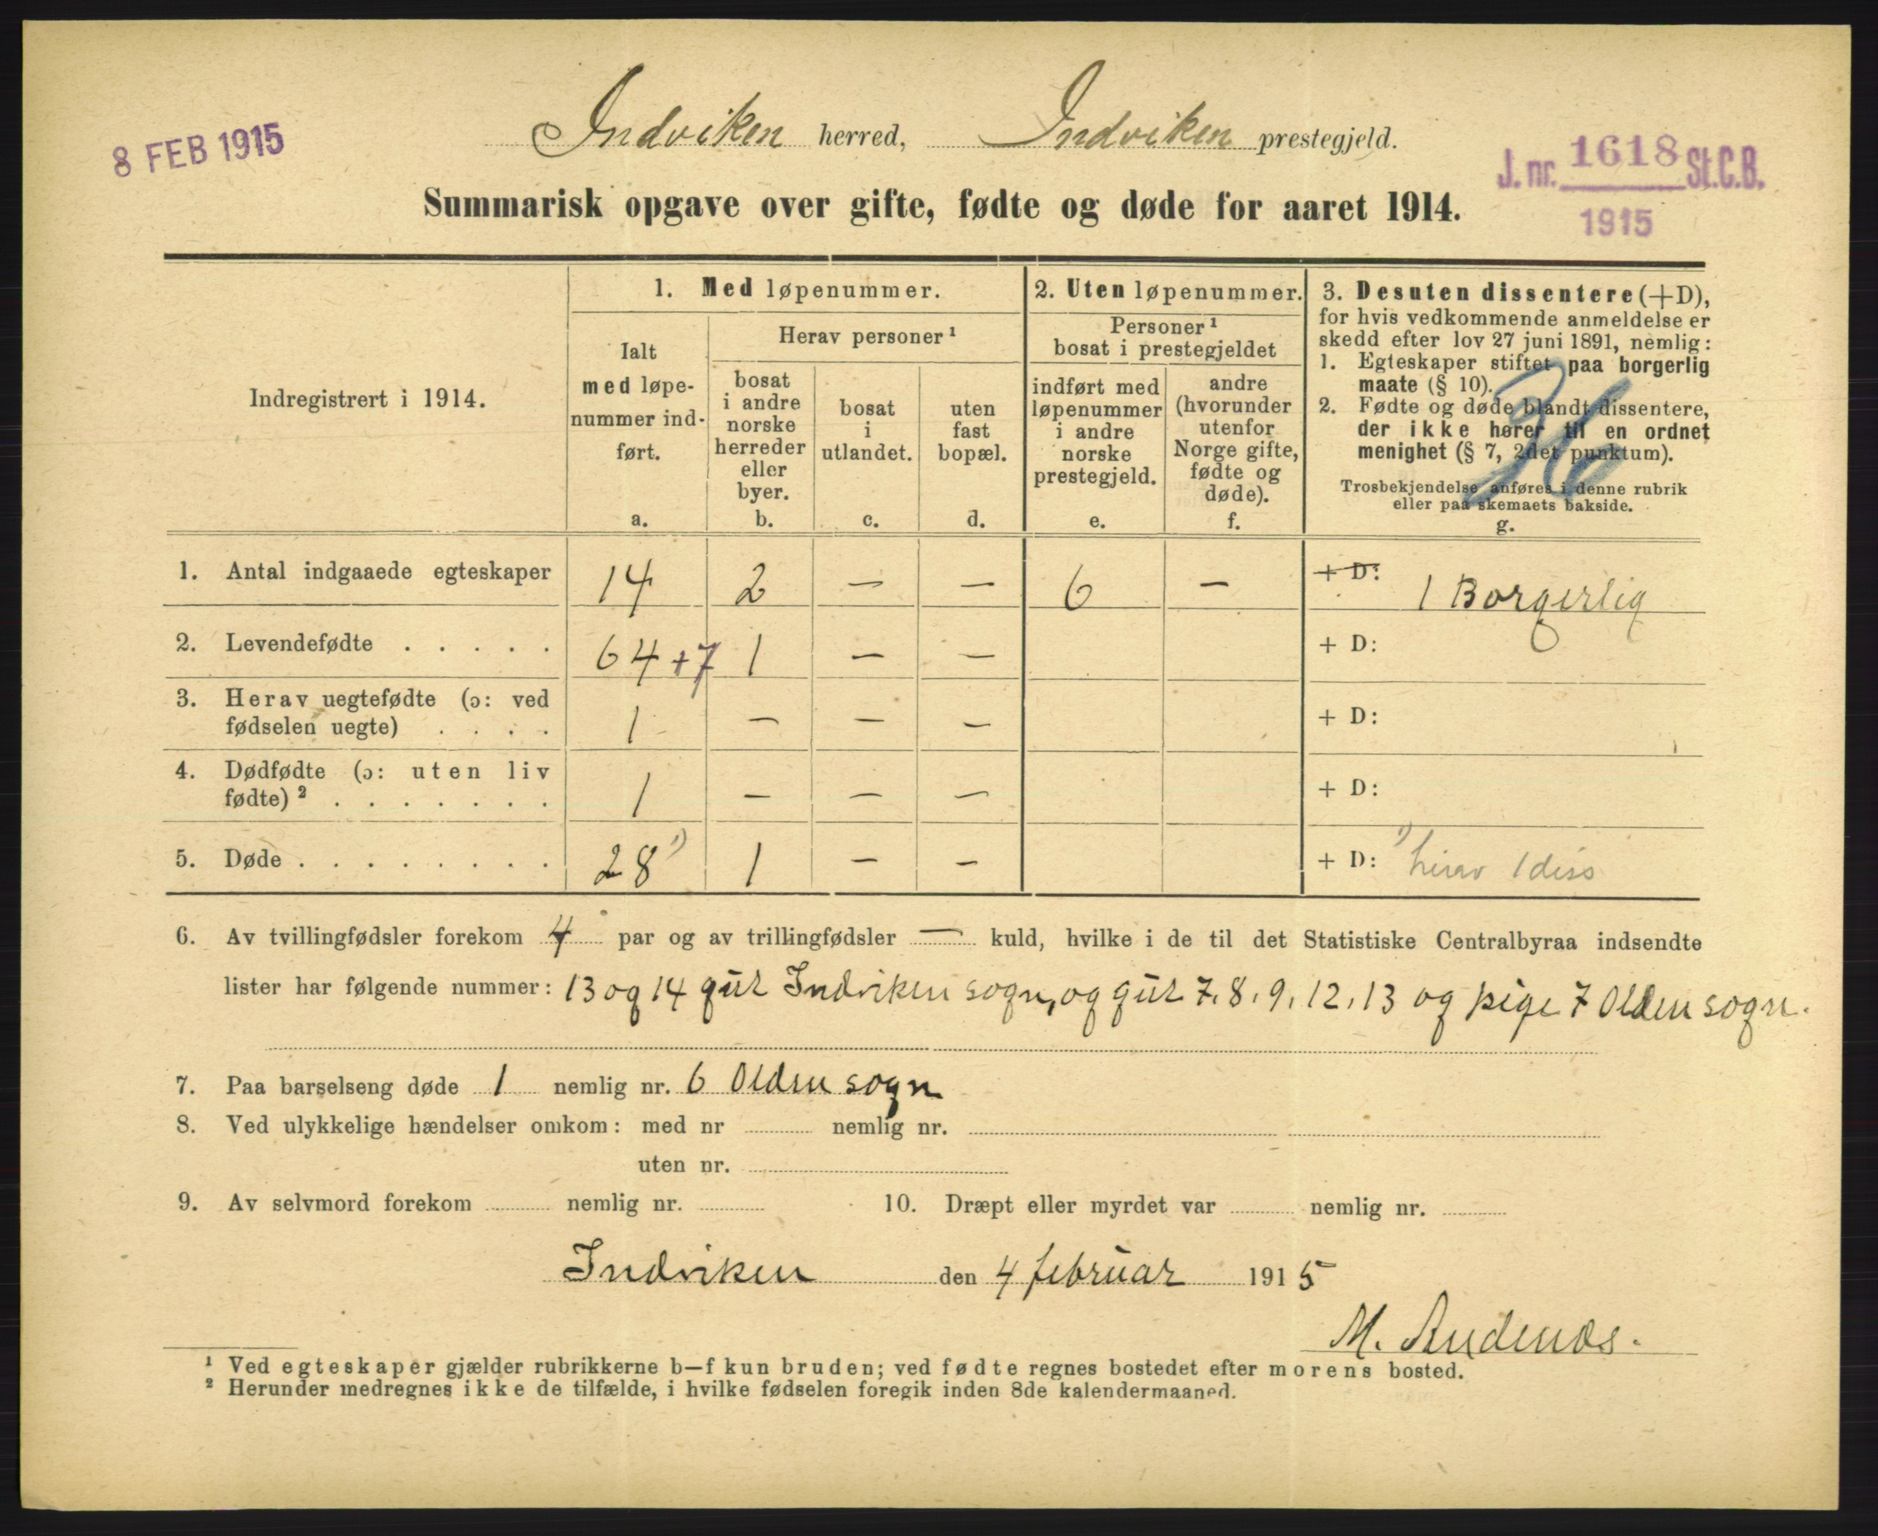 Indviken herred, Indviken prestegjeld.
8 FEB 1915
J. nr. 1618 St.C.B.
1915
Summarisk opgave over gifte, fødte og døde for aaret 1914.
Indregistrert i 1914.
1. Med løpenummer.
Ialt
med løpe-
nummer ind-
ført.
a.
Herav personer ¹
bosat
i andre
norske
herreder
eller
byer.
b.
bosat
i
utlandet.
c.
uten
fast
bopæl.
d.
2. Uten løpenummer.
Personer ¹
bosat i prestegjeldet
indført med
løpenummer
i andre
norske
prestegjeld.
e.
andre
(hvorunder
utenfor
Norge gifte,
fødte og
døde).
f.
3. Desuten dissentere (+D),
for hvis vedkommende anmeldelse er
skedd efter lov 27 juni 1891, nemlig:
1. Egteskaper stiftet paa borgerlig
maate (§ 10).
2. Fødte og døde blandt dissentere,
der ikke hører til en ordnet
menighet (§ 7, 2det punktum).
Trosbekjendelse anføres i denne rubrik
eller paa skemaets bakside.
g.
1. Antal indgaaede egteskaper 14 2 — — 6 — + D: 1 Borgerlig
2. Levendefødte . . . . . 64 +7 1 — — + D:
3. Herav uegtefødte (ɔ: ved
fødselen uegte) . . . . 1 — — — + D:
4. Dødfødte (ɔ: uten liv
fødte) ² . . . . . . . 1 — — — + D:
5. Døde . . . . . . . . 28 ¹) 1 — — + D: ¹) herav 1 diss
6. Av tvillingfødsler forekom 4 par og av trillingfødsler — kuld, hvilke i de til det Statistiske Centralbyraa indsendte
lister har følgende nummer: 13 og 14 gut Indviken sogn, og gut 7, 8, 9, 12, 13 og pige 7 Olden sogn.
7. Paa barselseng døde 1 nemlig nr. 6 Olden sogn
8. Ved ulykkelige hændelser omkom: med nr nemlig nr.
uten nr.
9. Av selvmord forekom nemlig nr. 10. Dræpt eller myrdet var nemlig nr.
Indviken den 4 februar 1915
M. Andenæs.
¹ Ved egteskaper gjælder rubrikkerne b—f kun bruden; ved fødte regnes bostedet efter morens bosted.
² Herunder medregnes ikke de tilfælde, i hvilke fødselen foregik inden 8de kalendermaaned.